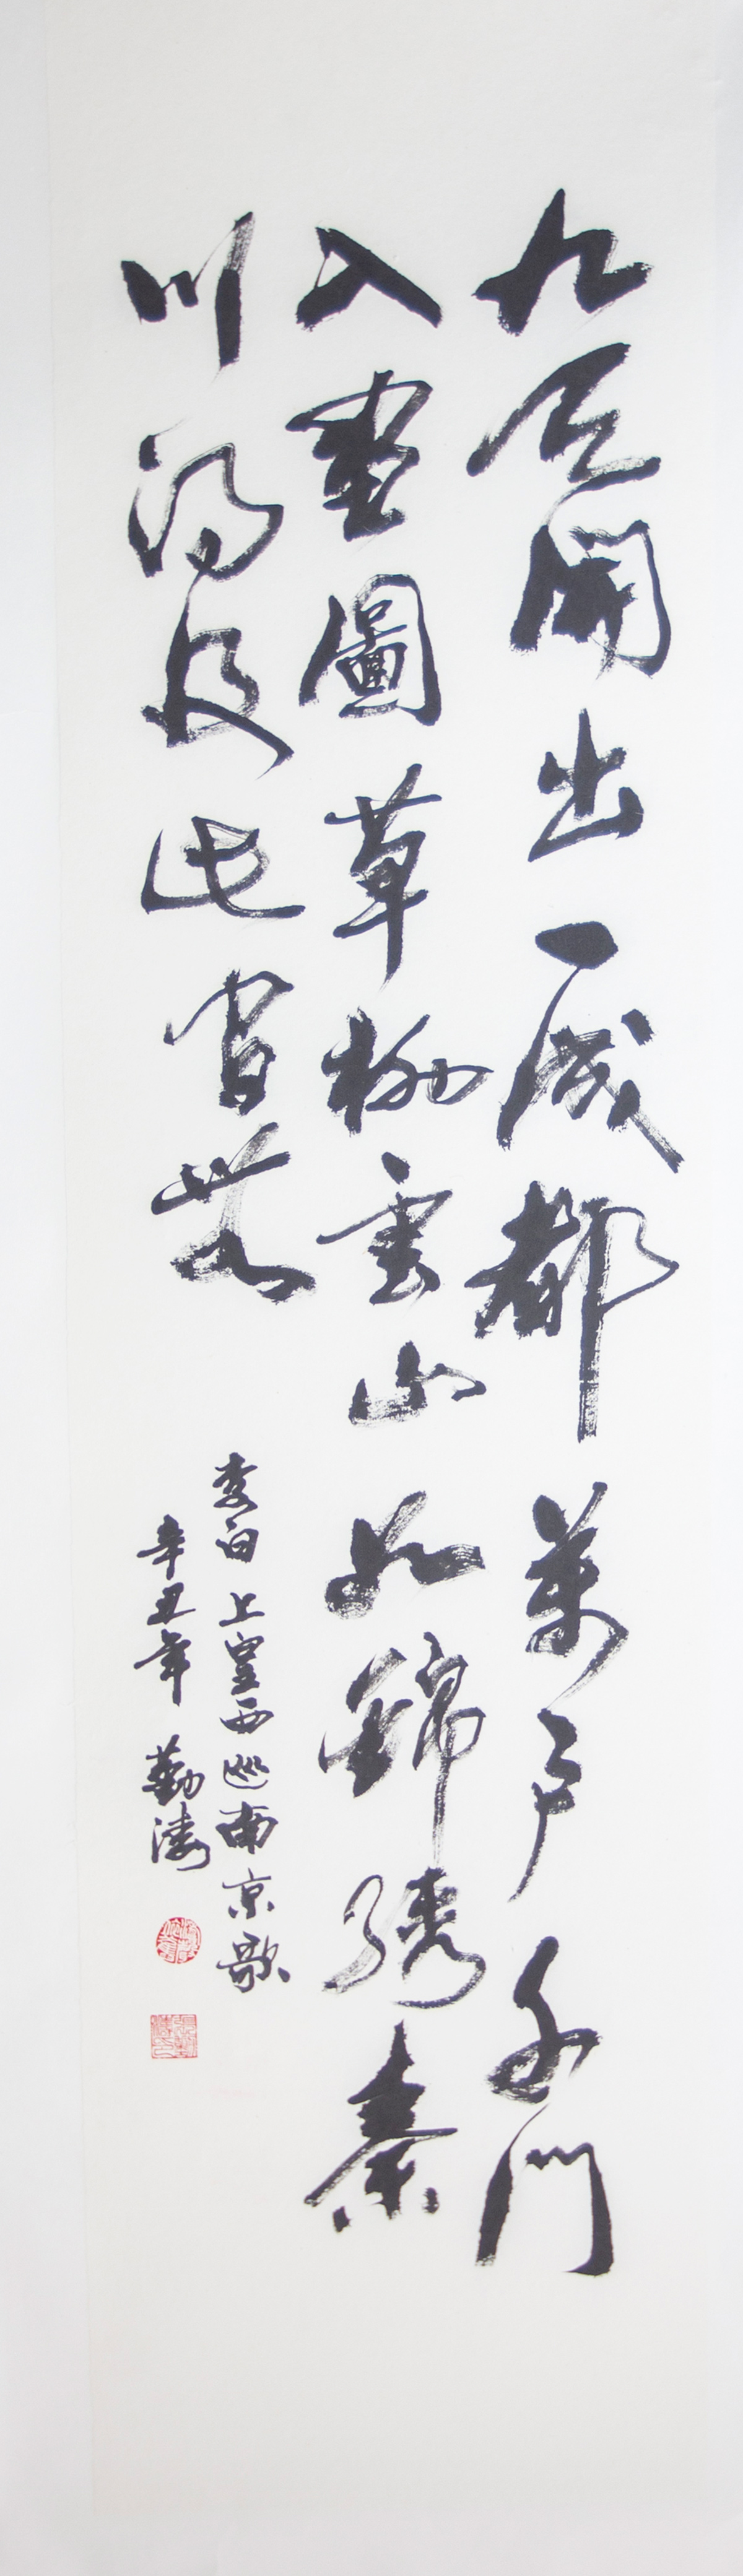 九天開出一成都萬戶千門
入畫圖草樹雲山如錦繡秦
川得及此間無
李白上皇西巡南京歌
辛丑年 勤濤